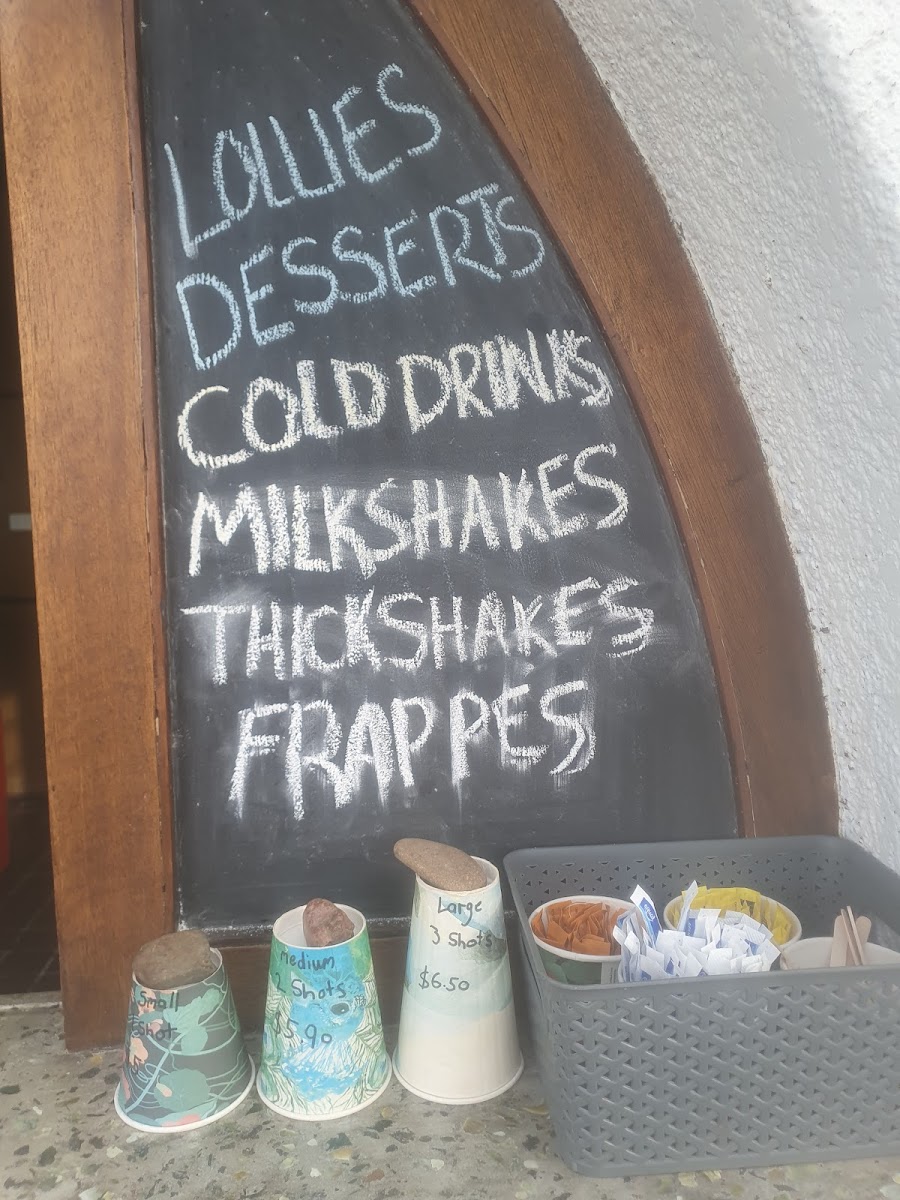 LOLLIES
DESSERTS
COLD DRINKS
MILKSHAKES
THICKSHAKES
FRAPPES
Small
Shot
Medium
2 Shots
$5.90
Large
3 Shots
$6.50